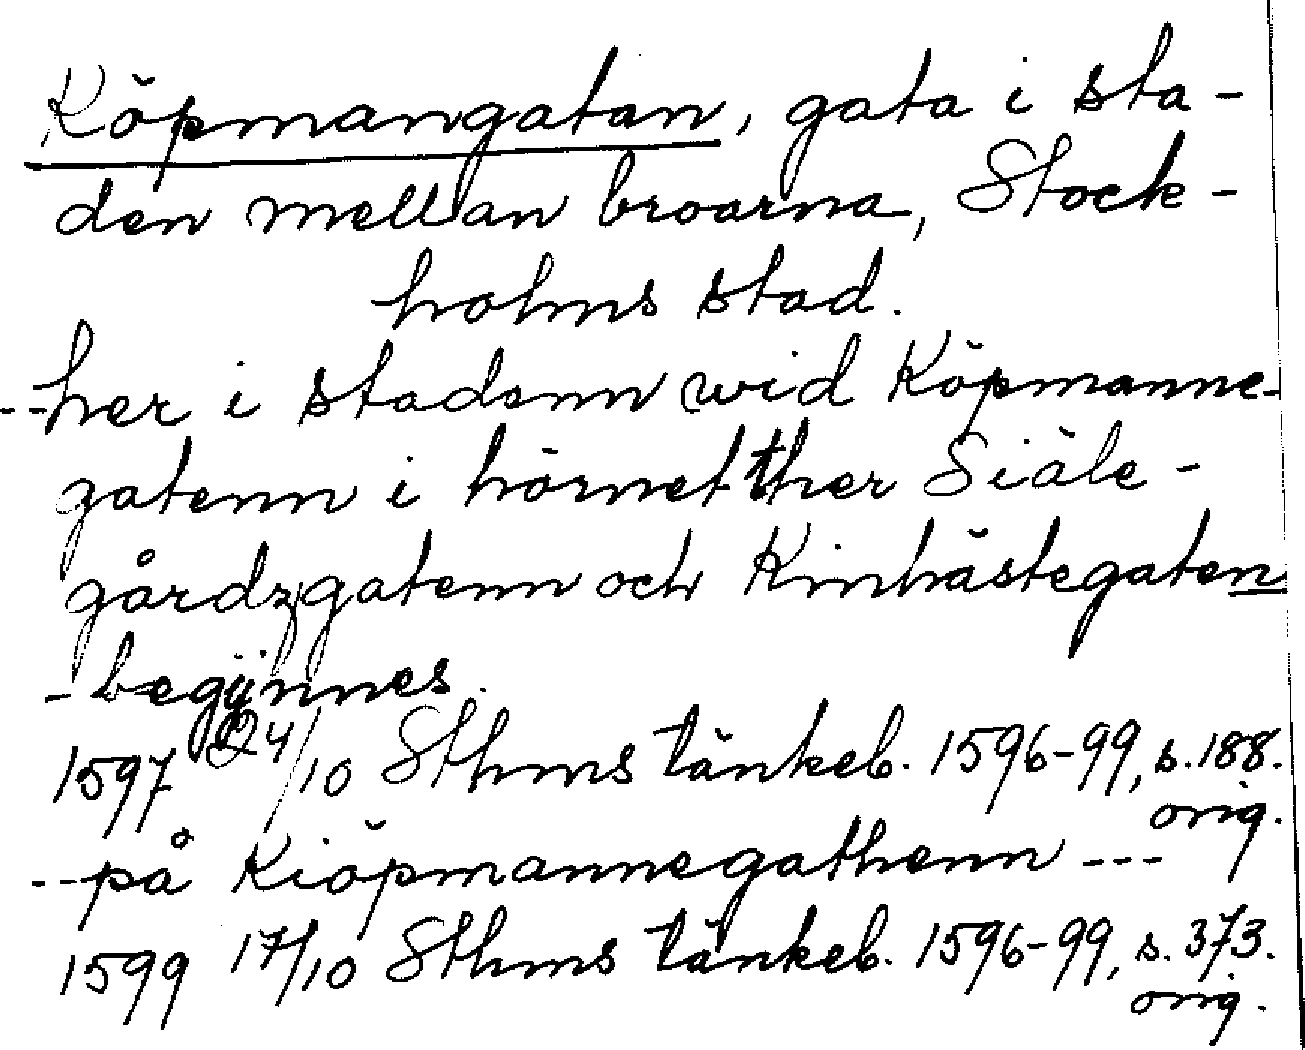 Köpmangatan, gata i sta-
den mellan broarna, Stock-
holms stad.
--her i stadenn wid Köpmanne-
gatenn i hörnet ther Siäle-
gårdzgatenn och Kinhästegaten
-begÿnnes.
1597 24/10 Sthms tänkeb. 1596-99, s. 188.
orig.
--på Kiöpmannegathenn ---
1599 17/10 Sthms tänkeb. 1596-99, s. 373.
orig.